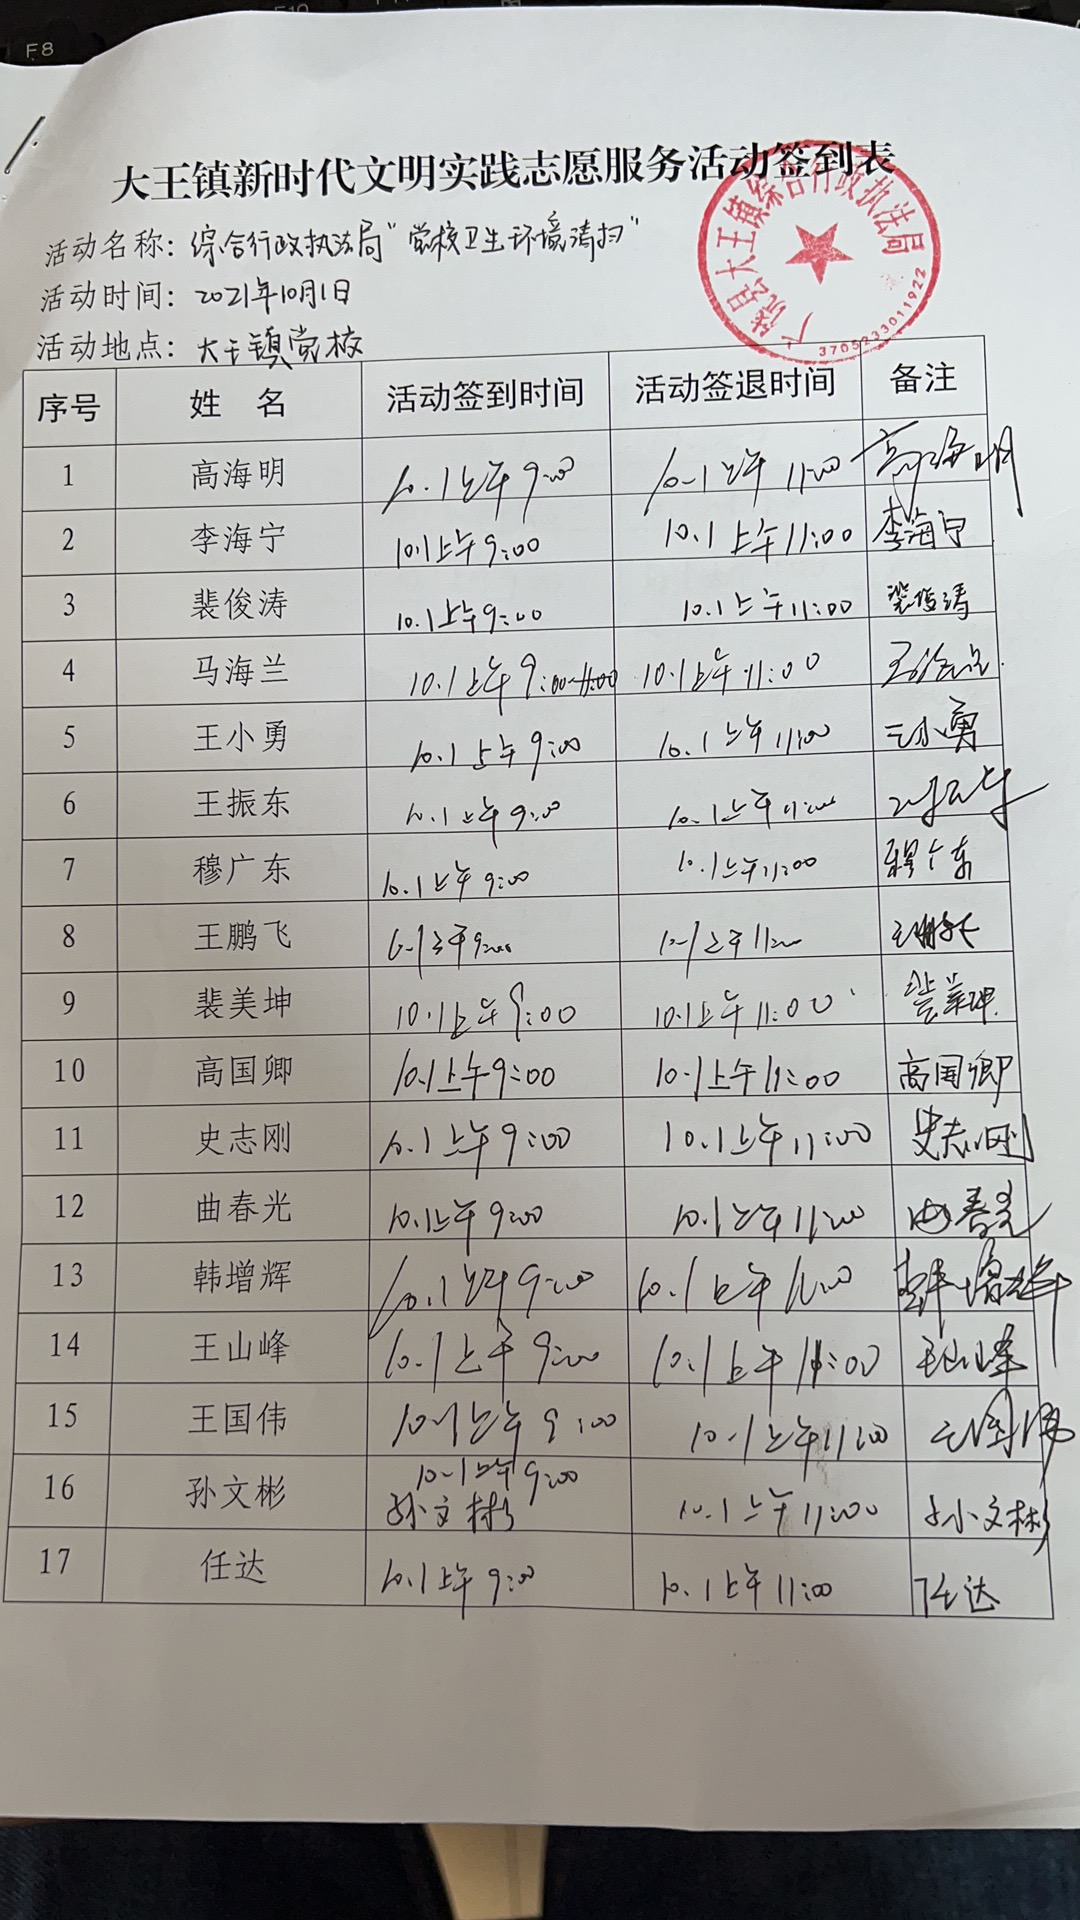 F8
F10
大王镇新时代文明实践志愿服务活动签到表
活动名称：综合行政执法局"党校卫生环境清扫"
活动时间：2021年10月1日
活动地点：大王镇党校
广饶县大王镇综合行政执法局
3705233011922
序号 姓 名 活动签到时间 活动签退时间 备注
1 高海明 10.1上午9:00 10.1上午11:00 高海明
2 李海宁 10.1上午9:00 10.1上午11:00 李海宁
3 裴俊涛 10.1上午9:00 10.1上午11:00 裴俊涛
4 马海兰 10.1上午9:00-11:00 10.1上午11:00
5 王小勇 10.1上午9:00 10.1上午11:00 王小勇
6 王振东 10.1上午9:00 10.1上午11:00
7 穆广东 10.1上午9:00 10.1上午11:00 穆广东
8 王鹏飞 10.1上午9:00 10.1上午11:00 王鹏飞
9 裴美坤 10.1上午9:00 10.1上午11:00 裴美坤
10 高国卿 10.1上午9:00 10.1上午11:00 高国卿
11 史志刚 10.1上午9:00 10.1上午11:00 史志刚
12 曲春光 10.1上午9:00 10.1上午11:00 曲春光
13 韩增辉 10.1上午9:00 10.1上午11:00 韩增辉
14 王山峰 10.1上午9:00 10.1上午11:00 王山峰
15 王国伟 10.1上午9:00 10.1上午11:00 王国伟
16 孙文彬 10.1上午9:00 孙文彬 10.1上午11:00 孙文彬
17 任达 10.1上午9:00 10.1上午11:00 任达